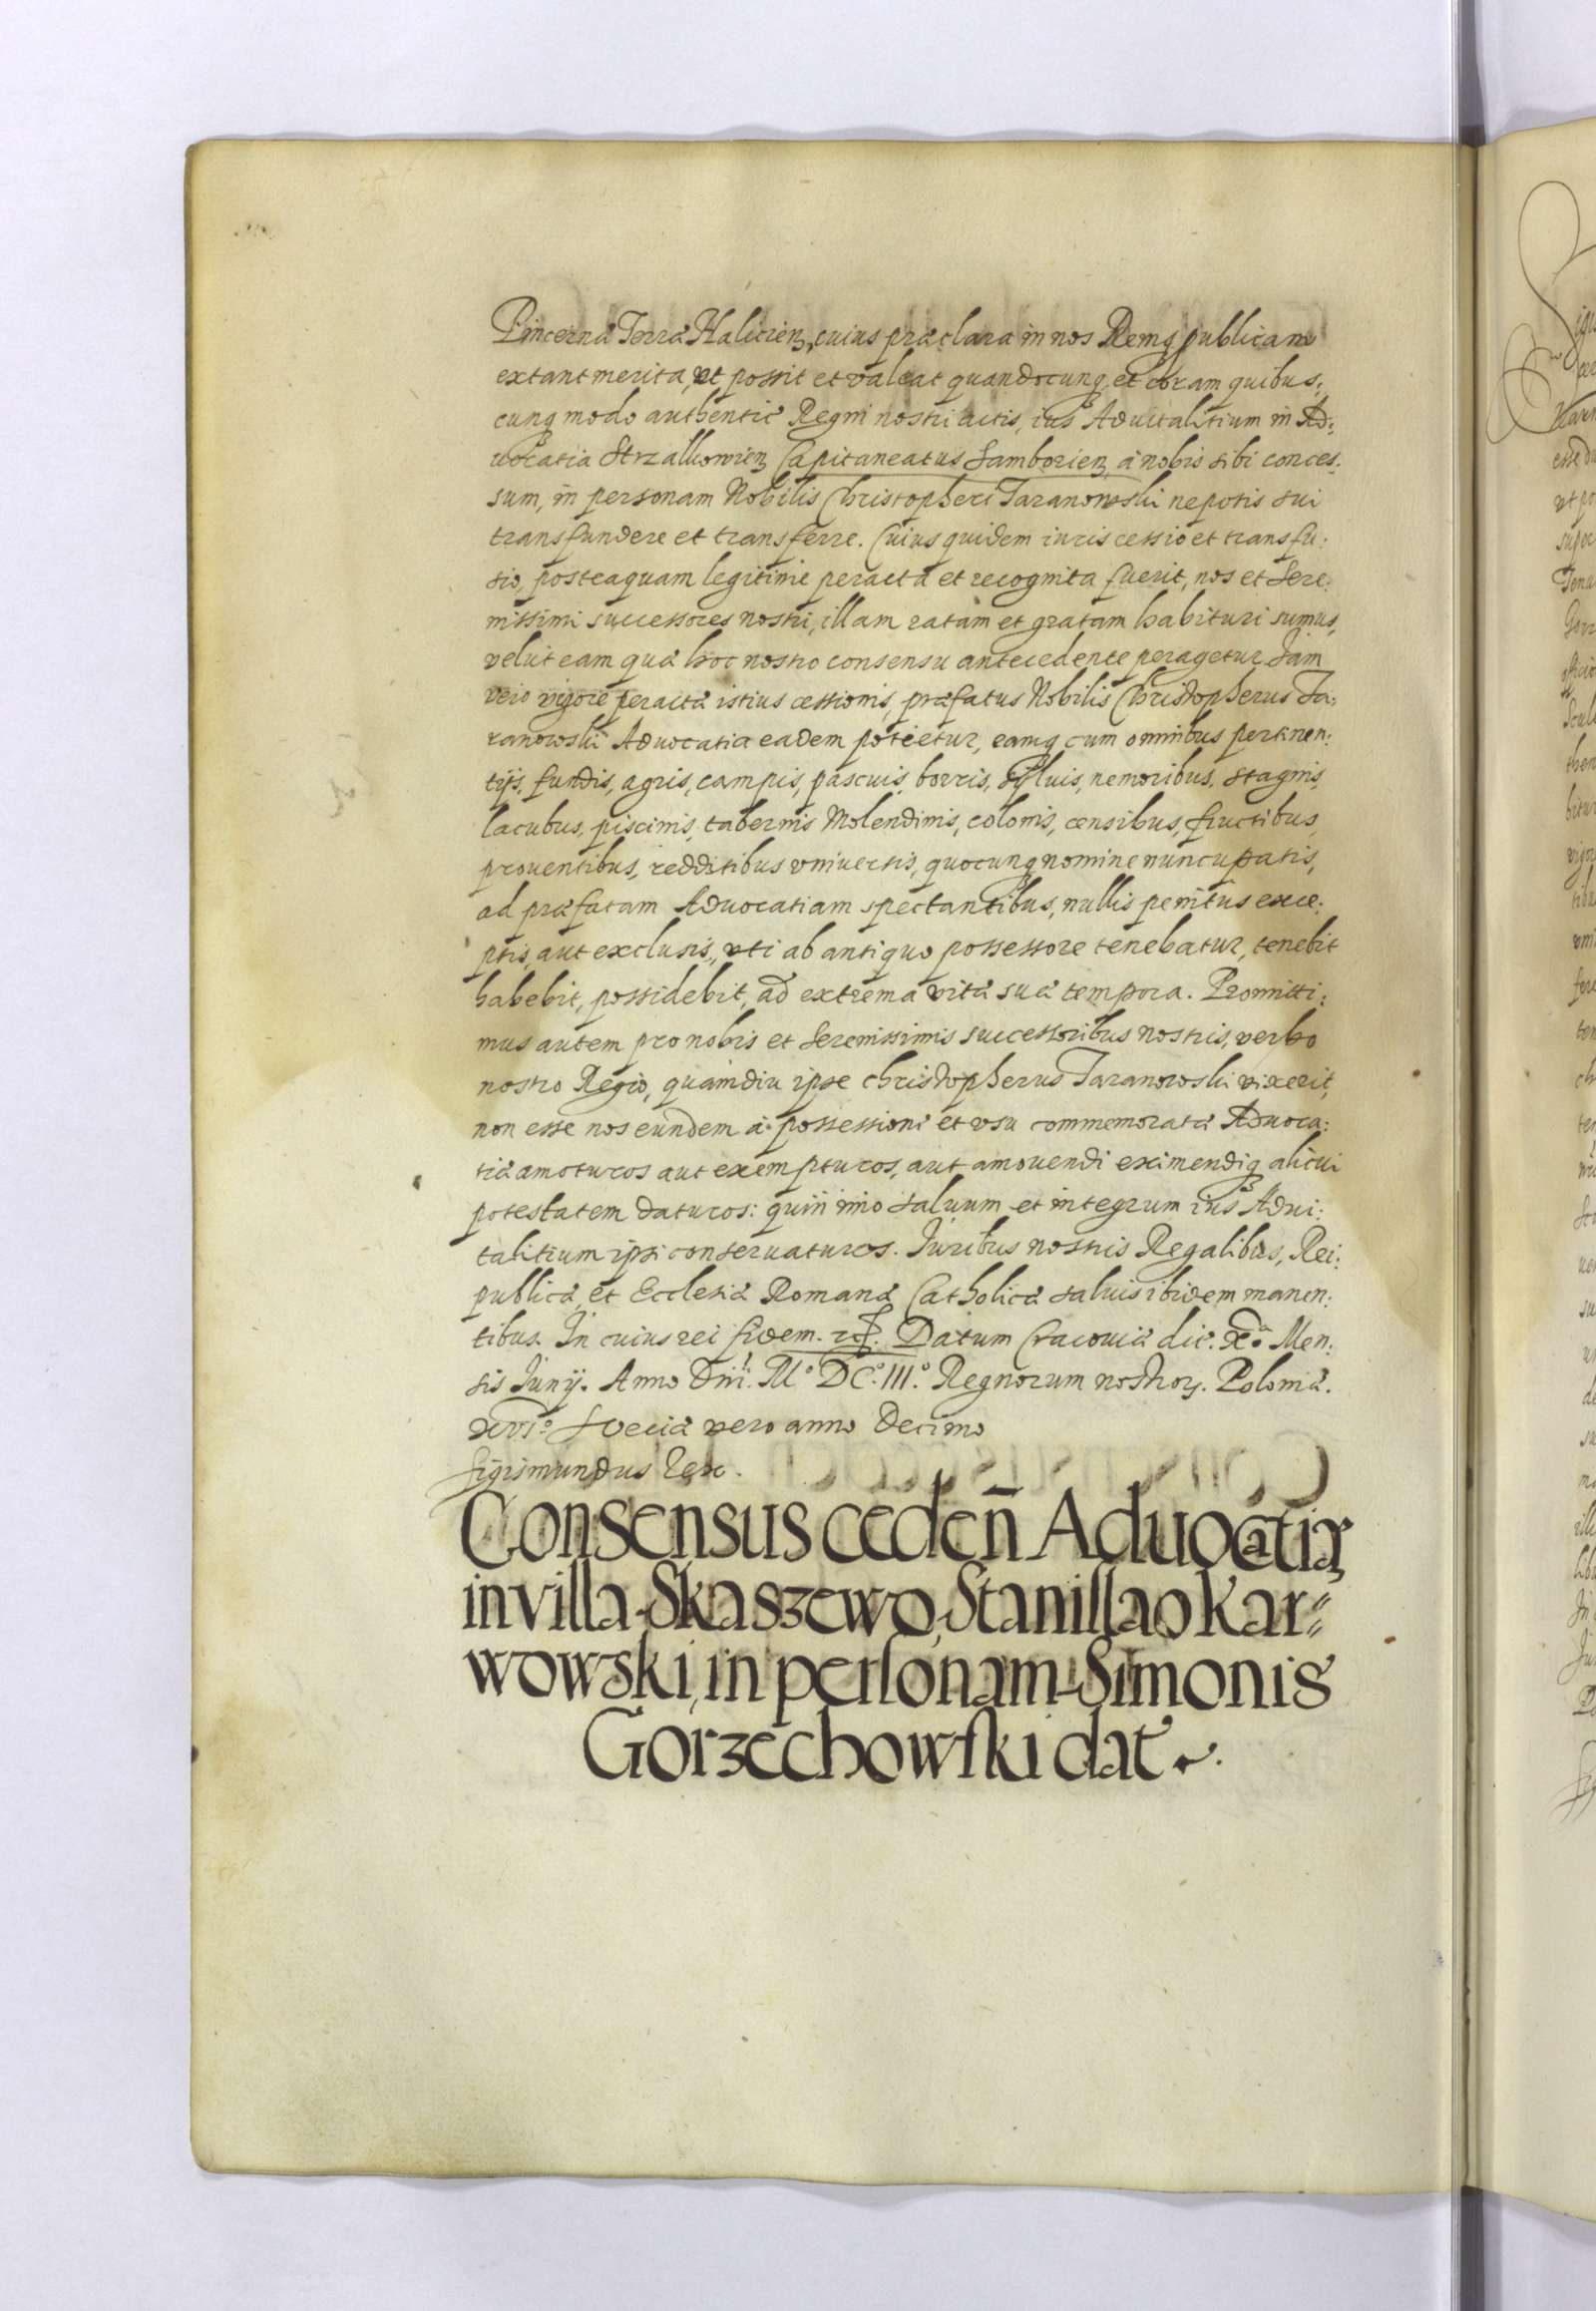 Pincernæ Terræ Halicien, cuius præclara in nos Remq publicam
extant merita, vt possit et valeat quandocunq et coram quibus:
cunq modo authenticè Regni nostri actis, ius Aduitalitium in Ad:
uocatia Strzalkowien Capitaneatus Samborien, à nobis sibi conces:
sum, in personam Nobilis Christopheri Taranowski nepotis sui
transfundere et transferre. Cuius quidem iuris cessio et transfu:
sio, posteaquam legitimè peracta et recognita fuerit, nos et Sere:
nissimi successores nostri, illam ratam et gratam habituri sumus,
velut eam quæ hoc nostro consensu antecedente peragetur. Iam
vero vigore peractæ istius cessionis, præfatus Nobilis Christopherus Ta:
ranowski Aduocatia eadem potietur, eamq cum omnibus pertinen:
tijs, fundis, agris, campis, pascuis, borris, syluis, nemoribus, stagnis,
lacubus, piscinis, tabernis Molendinis, colonis, censibus, fructibus,
prouentibus, redditibus vniuersis, quocunq nomine nuncupatis,
ad præfatam Aduocatiam spectantibus, nullis penitus exce:
ptis, aut exclusis, vti ab antiquo possessore tenebatur, tenebit
habebit, possidebit, ad extrema vitæ suæ tempora. Promitti:
mus autem pro nobis et Serenissimis successoribus nostris, verbo
nostro Regio, quamdiu ipse Christopherus Taranowski vixerit,
non esse nos eundem à possessione et vsu commemoratæ Aduoca:
tiæ amoturos aut exempturos, aut amouendi eximendiq alicui
potestatem daturos: quin imo saluum et integrum ius Adui:
talitium ipsi conseruaturos. Iuribus nostris Regalibus, Rei:
publicæ, et Ecclesiæ Romanæ Catholicæ saluis ibidem manen:
tibus. In cuius rei fidem. rct. Datum Cracouiæ die. Xa. Men:
sis Iunij. Anno Dni. Mo DCo. IIIo. Regnorum nostror. Poloniæ.
XVIo. Sveciæ vero anno Decimo
Sigismundus Rex.
Consensus ceden̄ Aduocatiæ,
in villa Skaszewo, Stanislao Kar"
wowski, in personam Simonis
Gorzechowski dat.